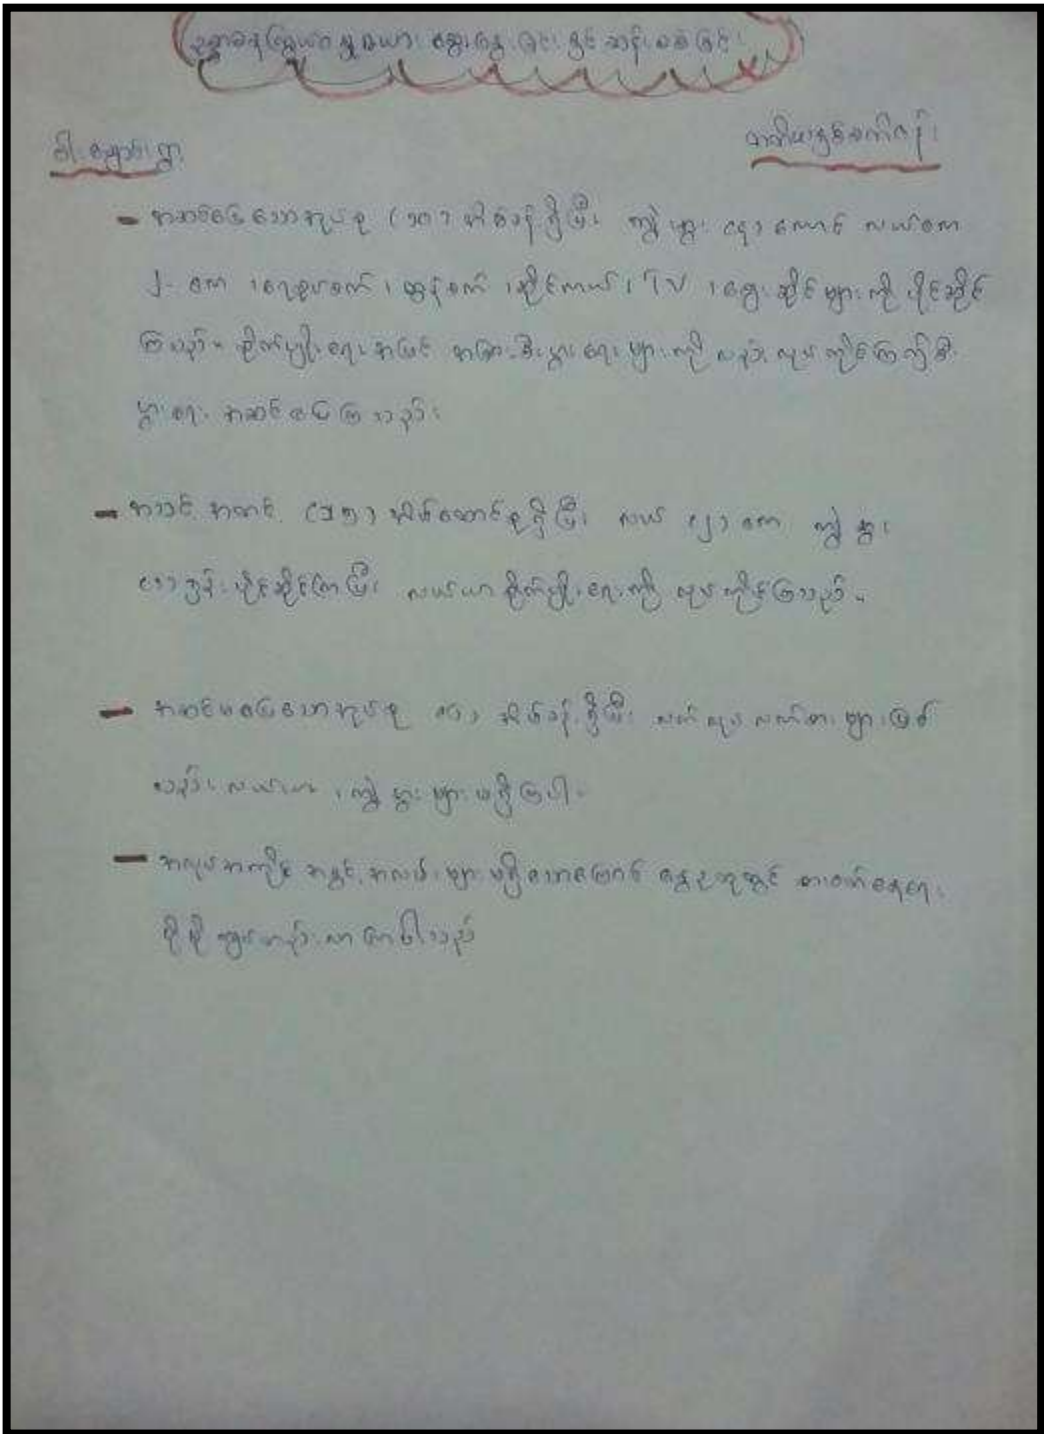 ဥစ္စာဓနကြွယ်ဝမှုအားဆွေးနွေးခြင်းနှင့်ဆန်းစစ်ခြင်း
ဝါးချောင်းရွာ
တတိယနှစ်စက်ဝန်း
- အဆင်ပြေသောအုပ်စု (၁၀) အိမ်ခန့်ရှိပြီး ကျွဲ နွား (၅) ကောင် လယ်ဧက
၂- ဧက ၊ ရေစုပ်စက် ၊ ထွန်စက် ၊ ဆိုင်ကယ် ၊ TV ၊ ဈေးဆိုင်များကို ပိုင်ဆိုင်
ကြသည်။ စိုက်ပျိုးရေးအပြင် အခြားစီးပွားရေးများကိုလည်း လုပ်ကိုင်ကြ၍ စီး
ပွားရေး အဆင်ပြေကြသည်။
- အသင့်အတင့် (၁၅) အိမ်ထောင်စုရှိပြီး လယ် (၂) ဧက ကျွဲ နွား
ပိုင်ဆိုင်ကြပြီး လယ်ယာစိုက်ပျိုးရေးကို လုပ်ကိုင်ကြသည်။
- အဆင်မပြေသောအုပ်စု အိမ်ခန့်ရှိပြီး လက်လုပ်လက်စားများဖြစ်
သည်။ လယ်ယာ ၊ ကျွဲ နွားများ မရှိကြပါ။
- အလုပ်အကိုင် အခွင့်အလမ်းများ မရှိသောကြောင့် နွေဥတုတွင် စားဝတ်နေရေး
ပိုမို ကြပ်တည်းလာကြပါသည်